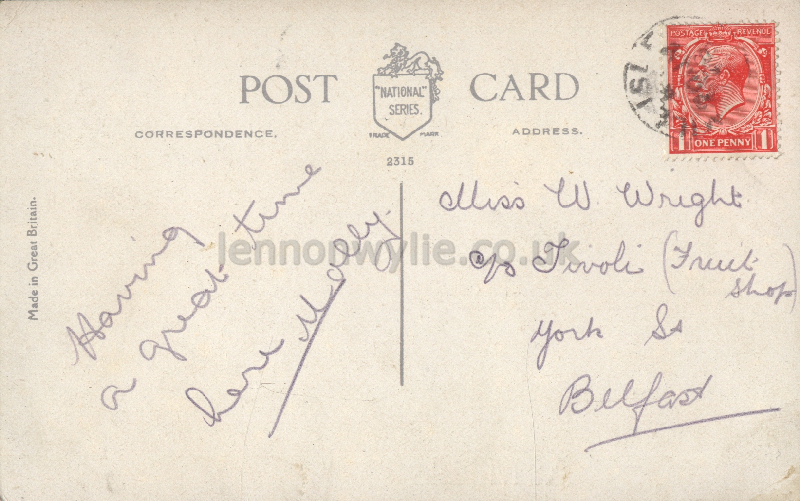 POST CARD
"NATIONAL"
SERIES.
TRADE MARK
CORRESPONDENCE.
ADDRESS.
2315
POSTAGE REVENUE
1 ONE PENNY 1
Made in Great Britain.
Having
a great time
here Molly.
Miss W. Wright.
c/o Tivoli (Fruit
Shop)
York St
Belfast
jennonwylie.co.uk